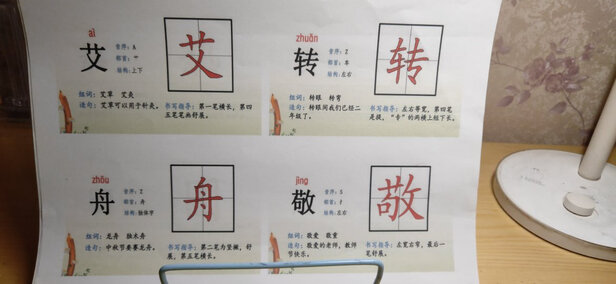 ài
艾
音序：A
部首：艹
结构：上下
艾
组词：艾草 艾灸
造句：艾草可以用于针灸。
书写指导：第一笔横长，第四
五笔笔画舒展。
zhuǎn
转
音序：Z
部首：车
结构：左右
转
组词：转眼 转弯
造句：转眼间我们已经二
年级了。
书写指导：左右等宽，第四笔
是提，“专”的两横上短下长。
zhōu
舟
音序：Z
部首：舟
结构：独体字
舟
组词：龙舟 独木舟
造句：中秋节要赛龙舟。
书写指导：第二笔为竖撇，舒
展，第五笔横长。
jìng
敬
音序：S
结构：左右
敬
组词：敬爱 敬重
造句：敬爱的老师，教师
节快乐。
书写指导：左宽右窄，最后一
笔舒展。